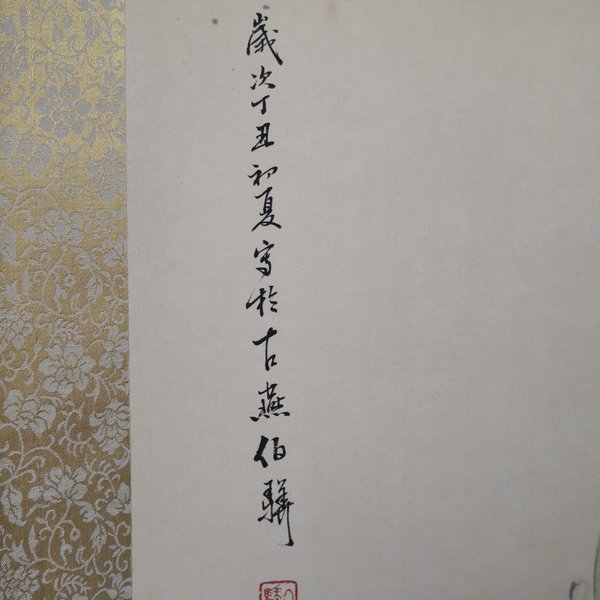 歲次丁丑初夏寫於古燕伯驊